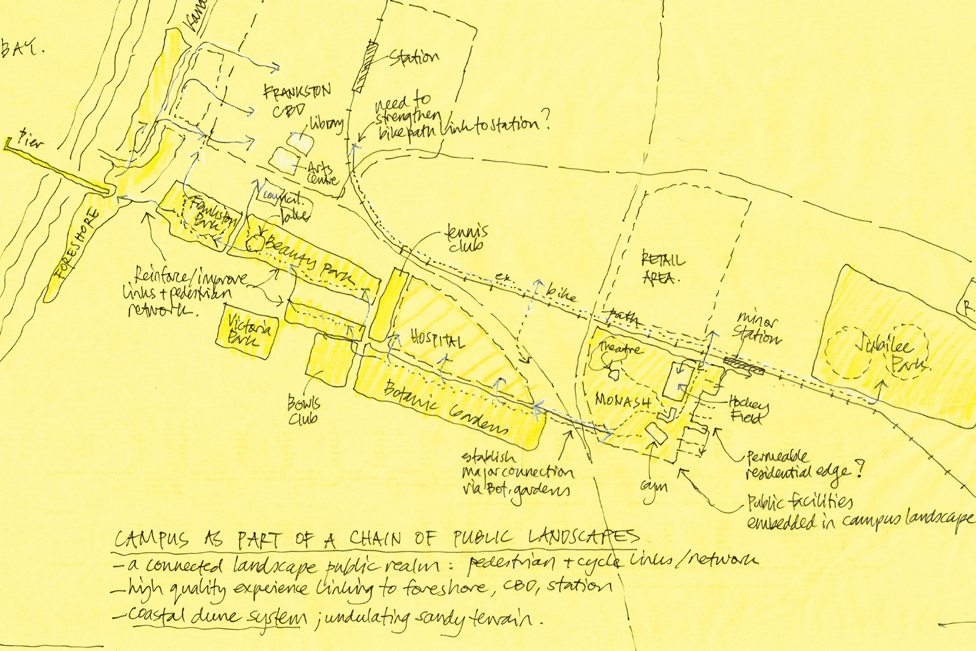 BAY.
Kana
Station
FRANKSTON
CBD
need to
strengthen
bike path link to station?
Library
Pier
Arts
Centre
Council
Frankston
Park
FORESHORE
Beauty Park
tennis
club
RETAIL
AREA.
Reinforce/improve
links + pedestrian
network.
ex.
bike
path
minor
station
Victoria
Park
HOSPITAL
Theatre
Jubilee
Park.
MONASH
Hockey
Field
Bowls
Club
Botanic Gardens
establish
major connection
via Bot. gardens
Gym
permeable
residential edge?
Public facilities
embedded in campus landscape
CAMPUS AS PART OF A CHAIN OF PUBLIC LANDSCAPES
- a connected landscape public realm: pedestrian + cycle links/network
- high quality experience linking to foreshore, CBD, station
- coastal dune system ; undulating sandy terrain.